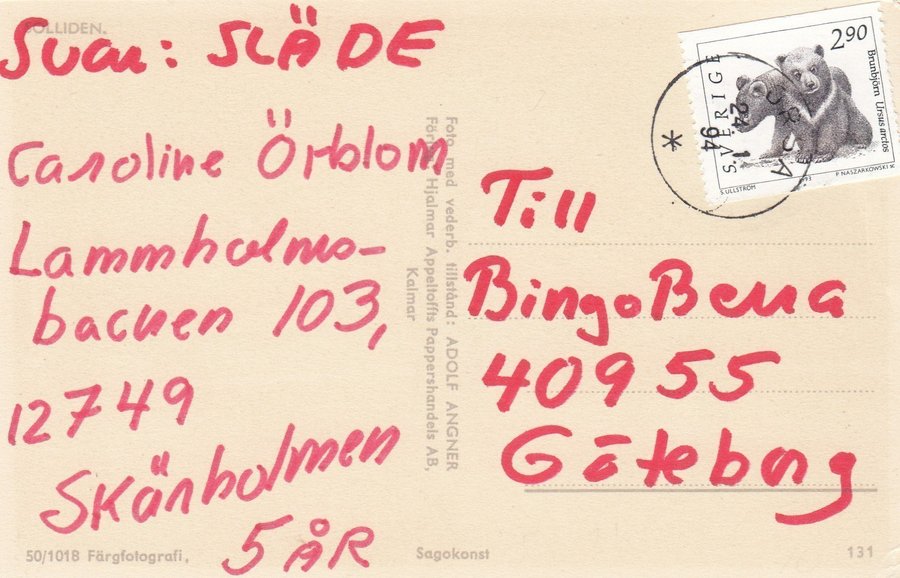 SOLLIDEN.
Svar: SLÄDE
Caroline Örblom
Lammholms-
backen 103,
12749
Skänholmen
5 ÅR
50/1018 Färgfotografi,
Foto med vederb. tillstånd: ADOLF ANGNER
Hjalmar Appeltoffts Pappershandels AB,
Kalmar
Sagokonst
131
Till
BingoBerra
40955
Göteborg
SVERIGE
2.90
Brunbjörn Ursus arctos
S.ULLSTRÖM
P NASZARKOWSKI SC
24 1
94